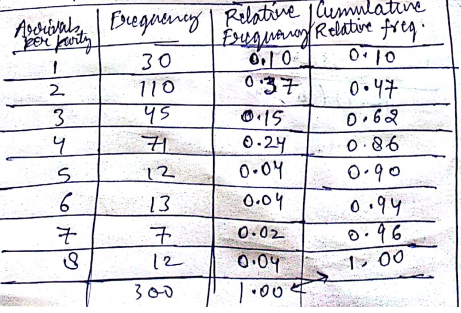 Arrival per party | Frequency | Relative Frequency | Cumulative Relative freq.
1 | 30 | 0.10 | 0.10
2 | 110 | 0.37 | 0.47
3 | 45 | 0.15 | 0.62
4 | 71 | 0.24 | 0.86
5 | 12 | 0.04 | 0.90
6 | 13 | 0.04 | 0.94
7 | 7 | 0.02 | 0.96
8 | 12 | 0.04 | 1.00
300 | 1.00